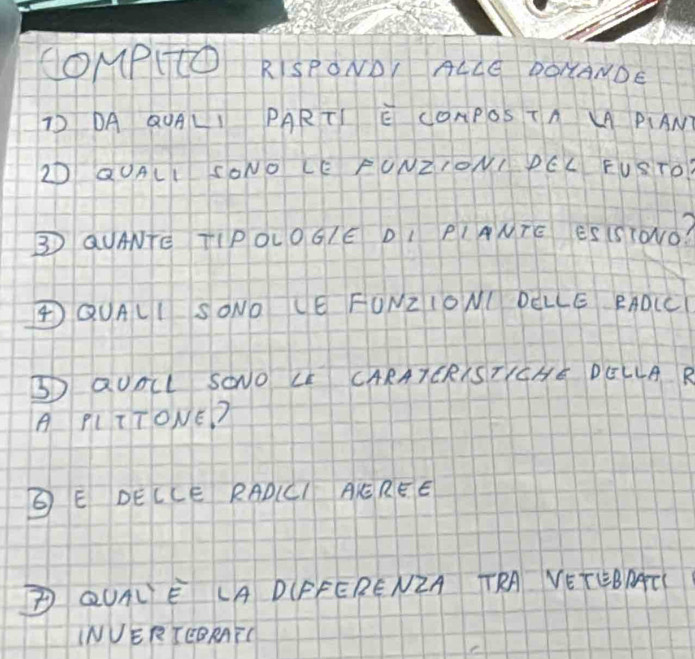 COMPITO RISPONDI ALLE DOMANDE
1) DA QUALI PARTI È COMPOSTA LA PIANT
2) QUALI SONO LE FUNZIONI DEL FUSTO?
3) QUANTE TIPOLOGIE DI PIANTE ESISTONO?
4) QUALI SONO LE FUNZIONI DELLE RADICI
5) QUALI SONO LE CARATERISTICHE DELLA R
A PITTONE?
6) E DELLE RADICI AEREE
7) QUAL'È LA DIFFERENZA TRA VETEBRATI
INVERTEBRATI